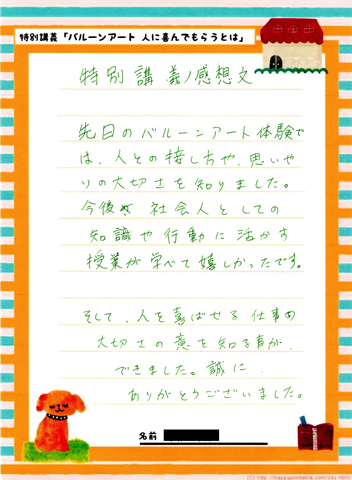 特別講義「バルーンアート 人に喜んでもらうとは」
特別講義ノ感想文
先日のバルーンアート体験で
は、人との接し方や、思いや
りの大切さを知りました。
今後、社会人としての
知識や行動に活かす
授業が学べて嬉しかったです。
そして、人を喜ばせる仕事の
大切さの意を知る事が、
できました。誠に、
ありがとうございました。
名前
(C) http://happylifestyle.com/